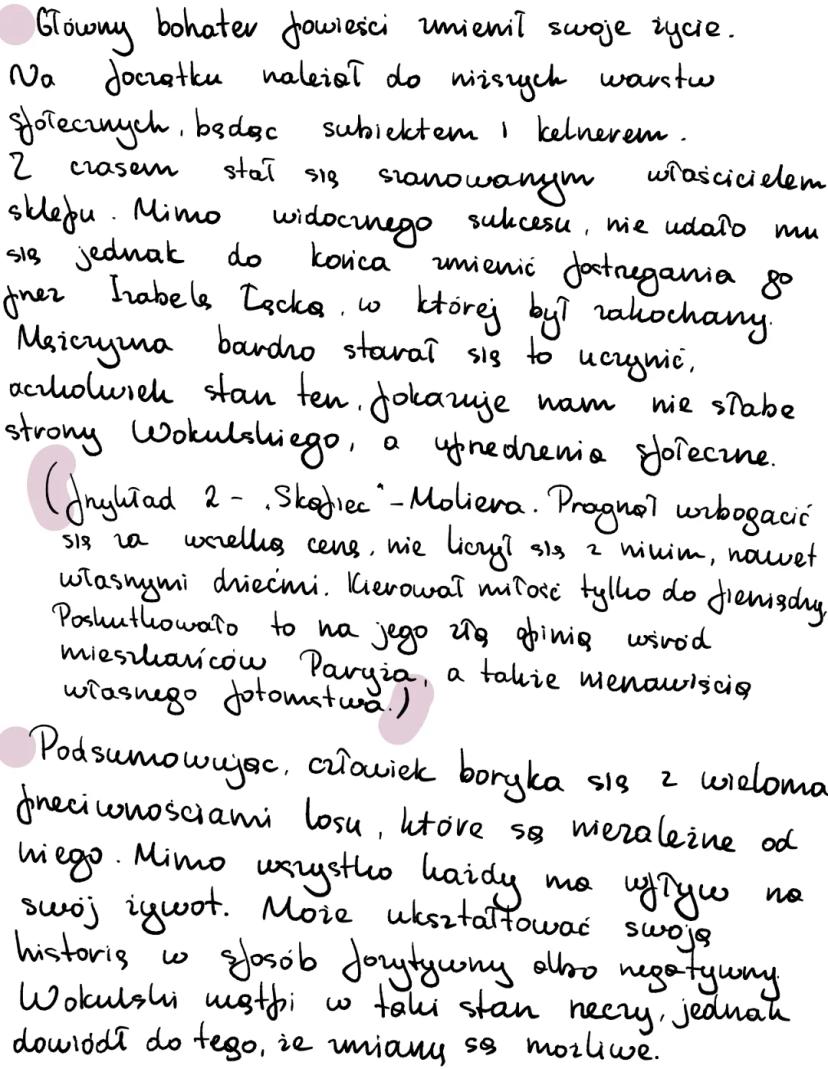 Główny bohater powieści zmienił swoje życie.
Na początku należał do niższych warstw
społecznych, będąc subiektem i kelnerem.
Z czasem stał się szanowanym właścicielem
sklepu. Mimo widocznego sukcesu, nie udało mu
się jednak do końca zmienić postrzegania go
przez Izabelę Łęcką, w której był zakochany.
Mężczyzna bardzo starał się to uczynić,
aczkolwiek stan ten, pokazuje nam nie słabe
strony Wokulskiego, a uprzedzenia społeczne.
(przykład 2 - "Skąpiec" - Moliera. Pragnął wzbogacić
się za wszelką cenę, nie liczył się z nikim, nawet
własnymi dziećmi. Kierował miłość tylko do pieniędzy.
Poskutkowało to na jego złą opinię wśród
mieszkańców Paryża, a także nienawiścią
własnego potomstwa.)
Podsumowując, człowiek boryka się z wieloma
przeciwnościami losu, które są niezależne od
niego. Mimo wszystko każdy ma wpływ na
swój żywot. Może ukształtować swoją
historię w sposób pozytywny albo negatywny.
Wokulski wątpi w taki stan rzeczy, jednak
dowiódł do tego, że zmiany są możliwe.